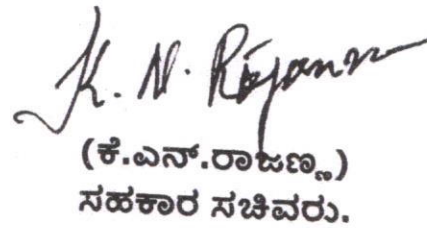 K. N. Rajanna
(ಕೆ.ಎನ್.ರಾಜಣ್ಣ)
ಸಹಕಾರ ಸಚಿವರು.